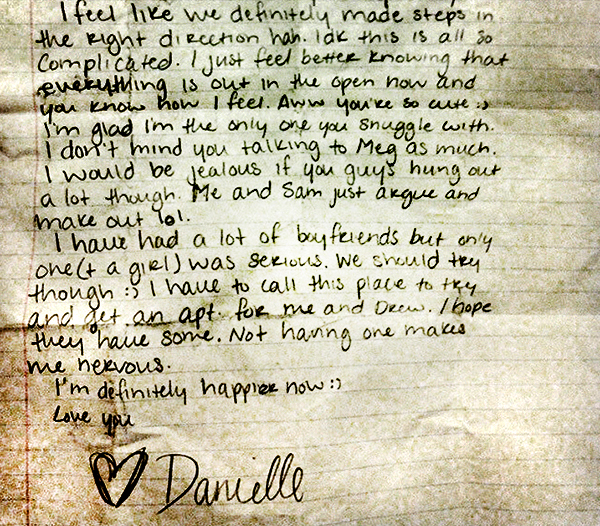 I feel like we definitely made steps in
the right direction hah. Idk this is all so
complicated. I just feel better knowing that
everything is out in the open now and
you know how I feel. Aww you're so cute :)
I'm glad I'm the only one you snuggle with.
I don't mind you talking to Meg as much.
I would be jealous if you guys hung out
a lot though. Me and Sam just argue and
make out lol.
I have had a lot of boyfriends but only
one (+ a girl) was serious. We should try
though :) I have to call this place to try
and get an apt. for me and Drew. I hope
they have some. Not having one makes
me nervous.
I'm definitely happier now :)
Love you
♡ Danielle